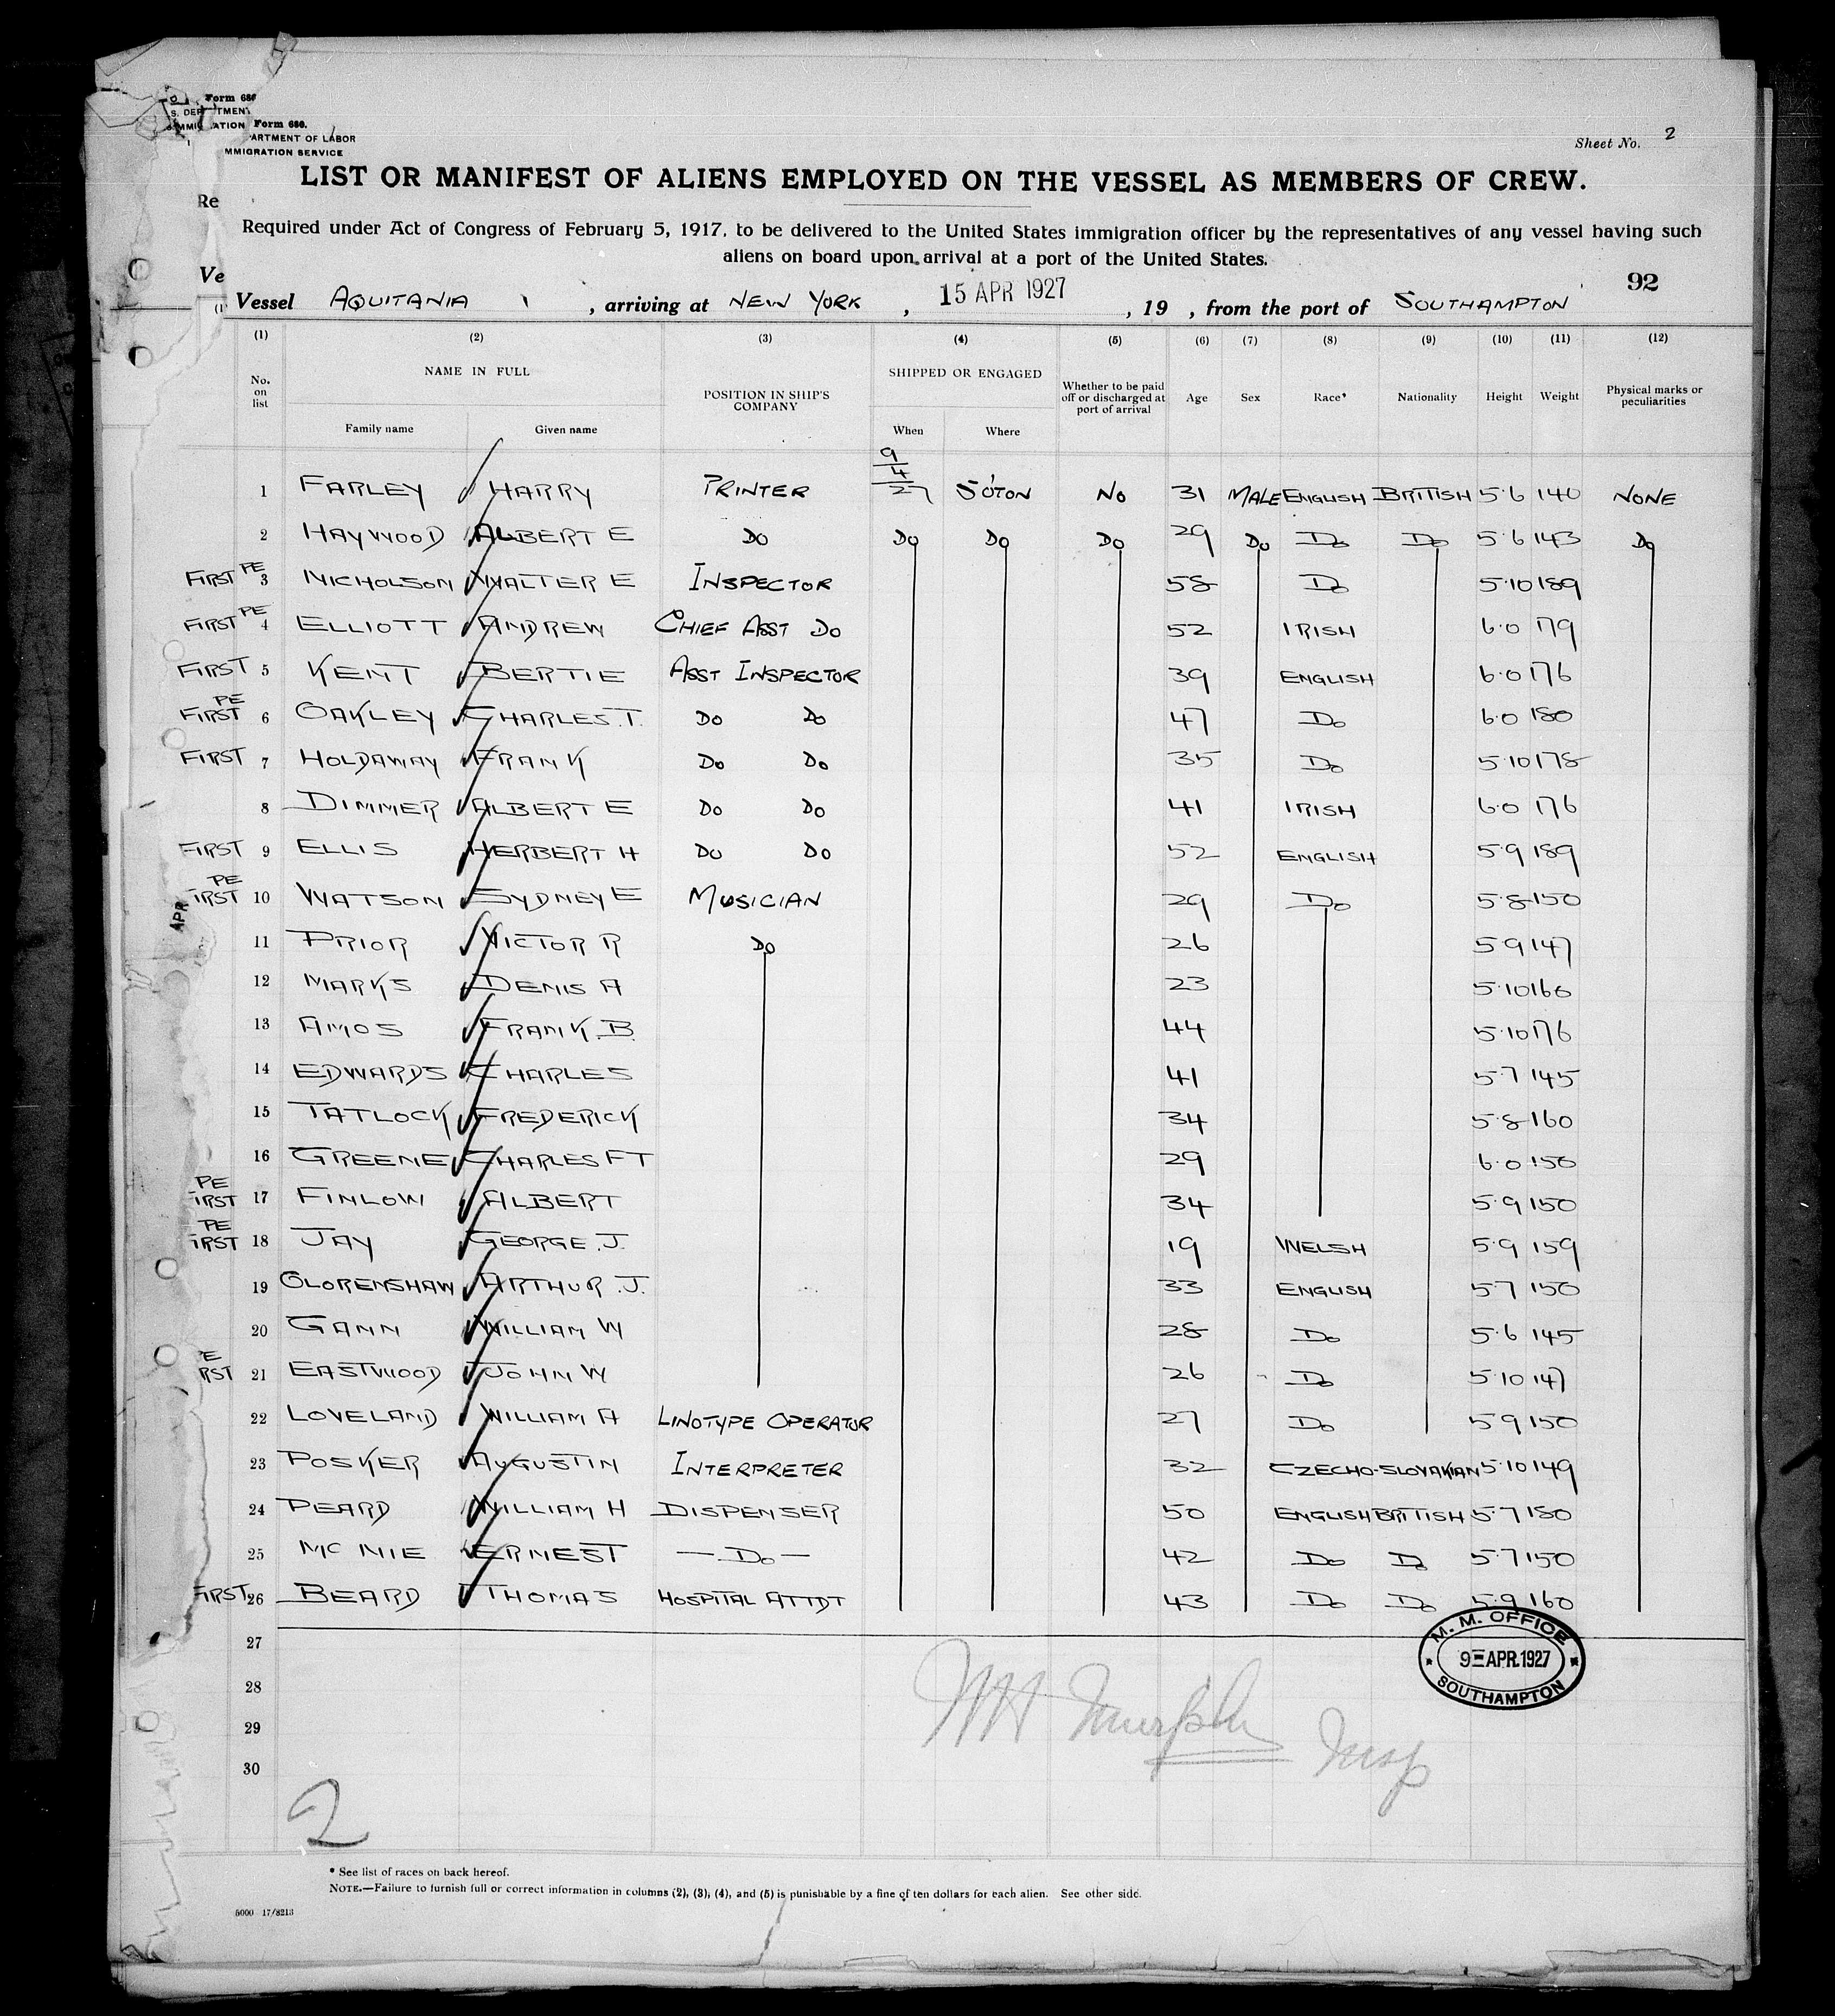 Form 686
S. DEP TMEN
MMIG ATION Form 686.
ARTMENT OF LABOR
MMIGRATION SERVICE
Sheet No. 2
LIST OR MANIFEST OF ALIENS EMPLOYED ON THE VESSEL AS MEMBERS OF CREW.
Re
Required under Act of Congress of February 5, 1917, to be delivered to the United States immigration officer by the representatives of any vessel having such
aliens on board upon arrival at a port of the United States.
Ve
92
Vessel AQUITANIA , arriving at NEW YORK , 15 APR 1927 , 19 , from the port of SOUTHAMPTON
(1) (2) (3) (4) (5) (6) (7) (8) (9) (10) (11) (12)
No. on list NAME IN FULL POSITION IN SHIP'S COMPANY SHIPPED OR ENGAGED Whether to be paid off or discharged at port of arrival Age Sex Race* Nationality Height Weight Physical marks or peculiarities
Family name Given name When Where
1 FARLEY HARRY PRINTER 9/4/27 SO'TON NO 31 MALE ENGLISH BRITISH 5·6 140 NONE
2 HAYWOOD ALBERT E DO DO DO DO 29 DO DO DO 5·6 143 DO
FIRST PE 3 NICHOLSON WALTER E INSPECTOR 58 DO 5·10 189
FIRST PE 4 ELLIOTT ANDREW CHIEF ASST DO 52 IRISH 6·0 179
FIRST 5 KENT BERTIE ASST INSPECTOR 39 ENGLISH 6·0 176
PE FIRST 6 OAKLEY CHARLES.T. DO DO 47 DO 6·0 180
FIRST 7 HOLDAWAY FRANK DO DO 35 DO 5·10 178
8 DIMMER ALBERT E DO DO 41 IRISH 6·0 176
FIRST 9 ELLIS HERBERT H DO DO 52 ENGLISH 5·9 189
PE IRST 10 WATSON SYDNEY E MUSICIAN 29 DO 5·8 150
APR
11 PRIOR VICTOR R DO 26 5·9 147
12 MARKS DENIS A 23 5·10 160
13 AMOS FRANK.B. 44 5·10 176
14 EDWARDS CHARLES 41 5·7 145
15 TATLOCK FREDERICK 34 5·8 160
16 GREENE CHARLES F T 29 6·0 150
PE IRST 17 FINLOW ALBERT 34 5·9 150
PE IRST 18 JAY GEORGE.J. 19 WELSH 5·9 159
19 OLORENSHAW ARTHUR.J. 33 ENGLISH 5·7 150
20 GANN WILLIAM W 28 DO 5·6 145
E RST 21 EASTWOOD JOHN W 26 DO 5·10 147
22 LOVELAND WILLIAM A LINOTYPE OPERATOR 27 DO 5·9 150
23 POSKER AUGUSTIN INTERPRETER 32 CZECHO-SLOVAKIAN 5·10 149
24 PEARD WILLIAM H DISPENSER 50 ENGLISH BRITISH 5·7 180
25 MC NIE ERNEST — DO — 42 DO DO 5·7 150
FIRST 26 BEARD THOMAS HOSPITAL ATTDT 43 DO DO 5·9 160
27
M. M. OFFICE
9 - APR. 1927
SOUTHAMPTON
28
29
WH Murphy Insp
30
2
* See list of races on back hereof.
NOTE.—Failure to furnish full or correct information in columns (2), (3), (4), and (5) is punishable by a fine of ten dollars for each alien. See other side.
5000 17/8213